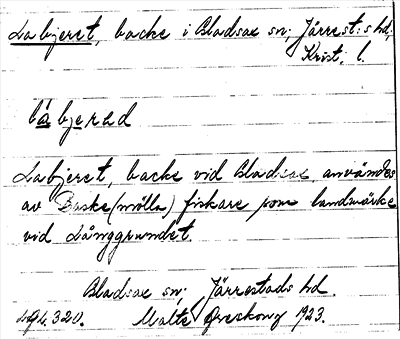 Labjeret, backe i Bladsax sn; Järrest:s hd,
Krist. l.
Labjeret, backe vid Bladsax användes
av Baske(mölla) fiskare som landmärke
vid Långgrundet.
Bladsax sn; Järrestads hd.
320. Malte 1923.